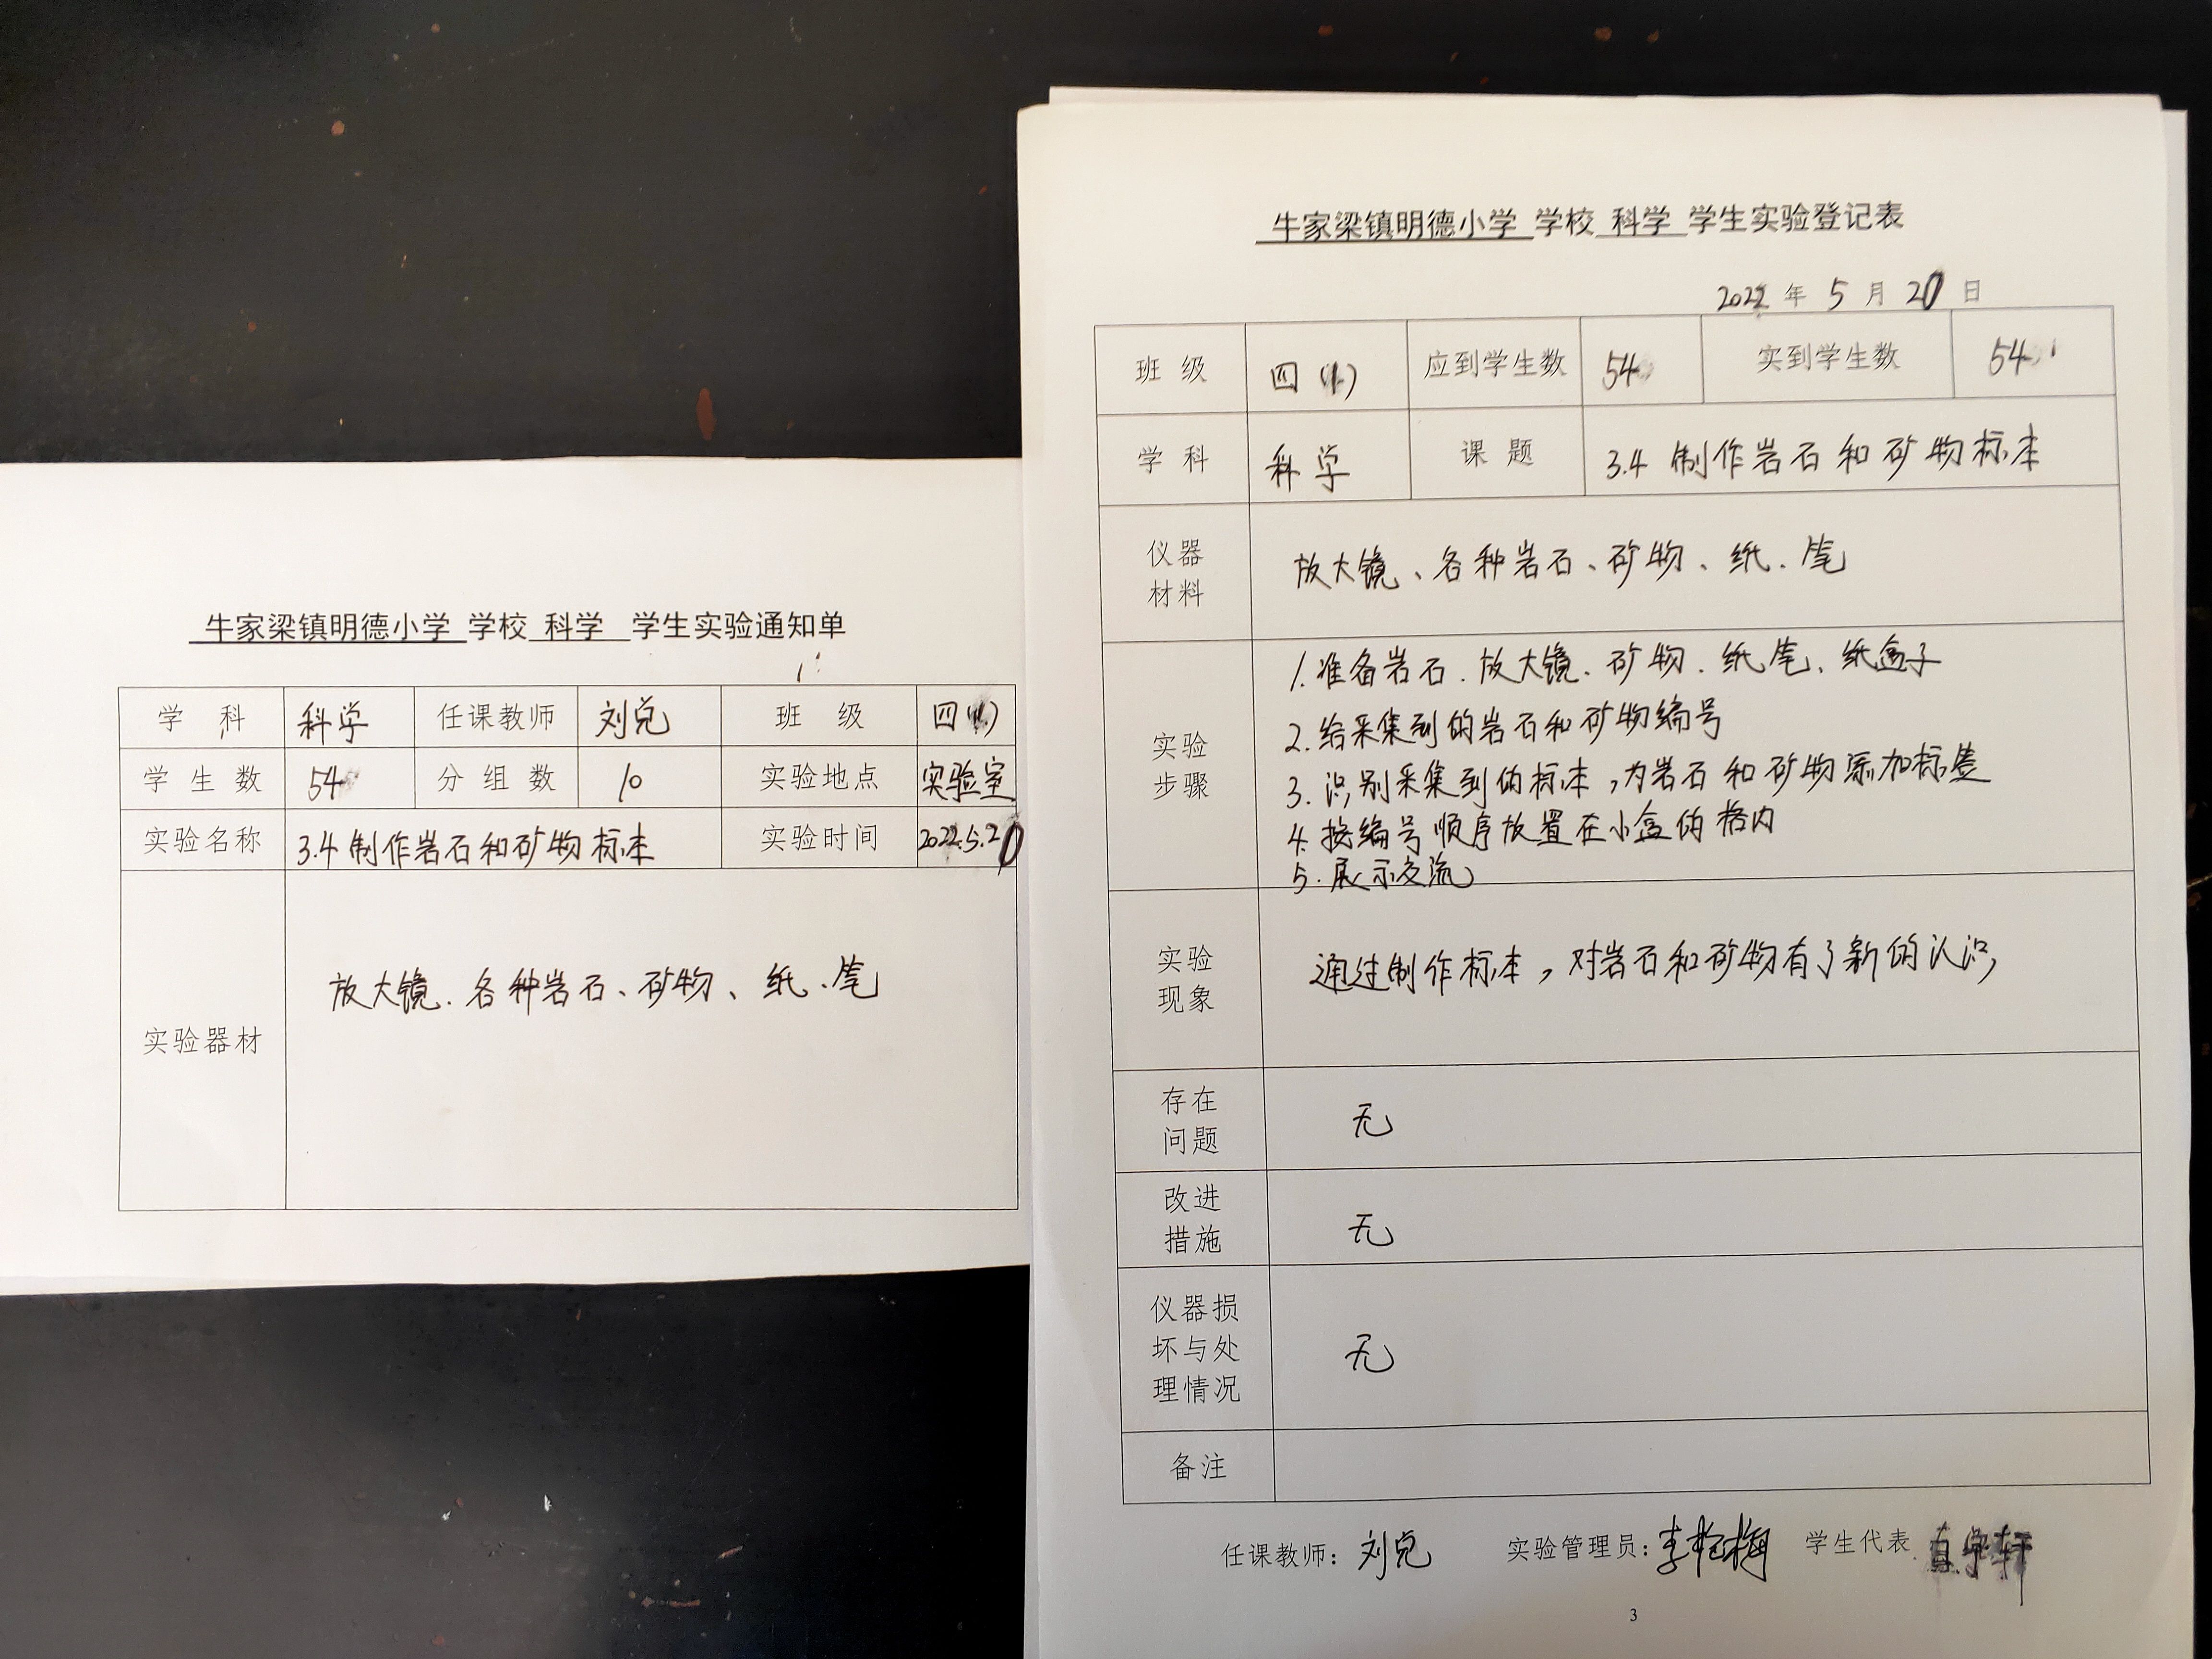 牛家梁镇明德小学 学校 科学 学生实验通知单
学 科 科学 任课教师 刘兑 班 级 四(1)
学 生 数 54 分 组 数 10 实验地点 实验室
实验名称 3.4 制作岩石和矿物标本 实验时间 2022.5.20
实验器材 放大镜、各种岩石、矿物、纸、笔
牛家梁镇明德小学 学校 科学 学生实验登记表
2022 年 5 月 20 日
班 级 四(1) 应到学生数 54 实到学生数 54
学 科 科学 课 题 3.4 制作岩石和矿物标本
仪器
材料
放大镜、各种岩石、矿物、纸、笔
实验
步骤
1.准备岩石、放大镜、矿物、纸笔、纸盒子
2.给采集到的岩石和矿物编号
3.识别采集到的标本,为岩石和矿物添加标签
4.按编号顺序放置在小盒的格内
5.展示交流
实验
现象
通过制作标本,对岩石和矿物有了新的认识
存在
问题
无
改进
措施
无
仪器损
坏与处
理情况
无
备注
任课教师: 刘兑 实验管理员: 学生代表
3